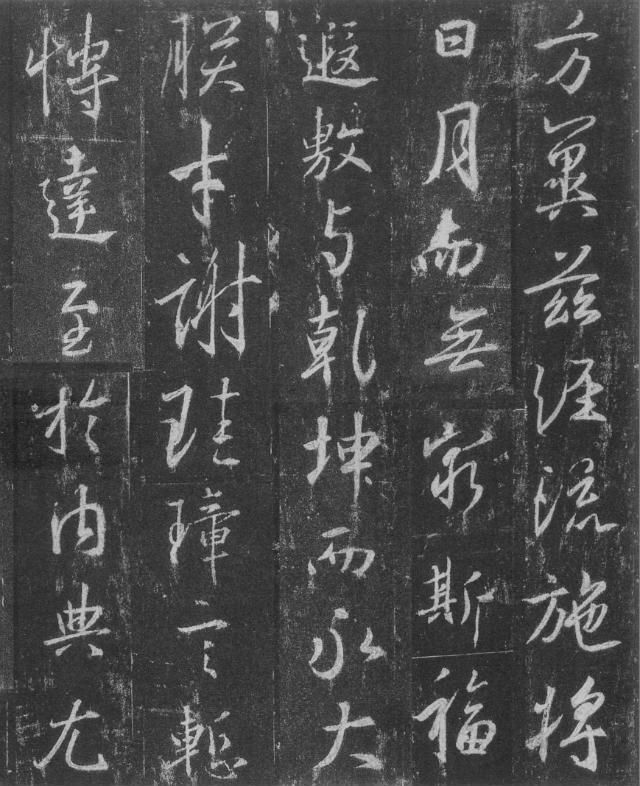 方冀茲經流施將
日月而無窮斯福
遐敷與乾坤而永大
朕才謝珪璋言慙
博達至於内典尤